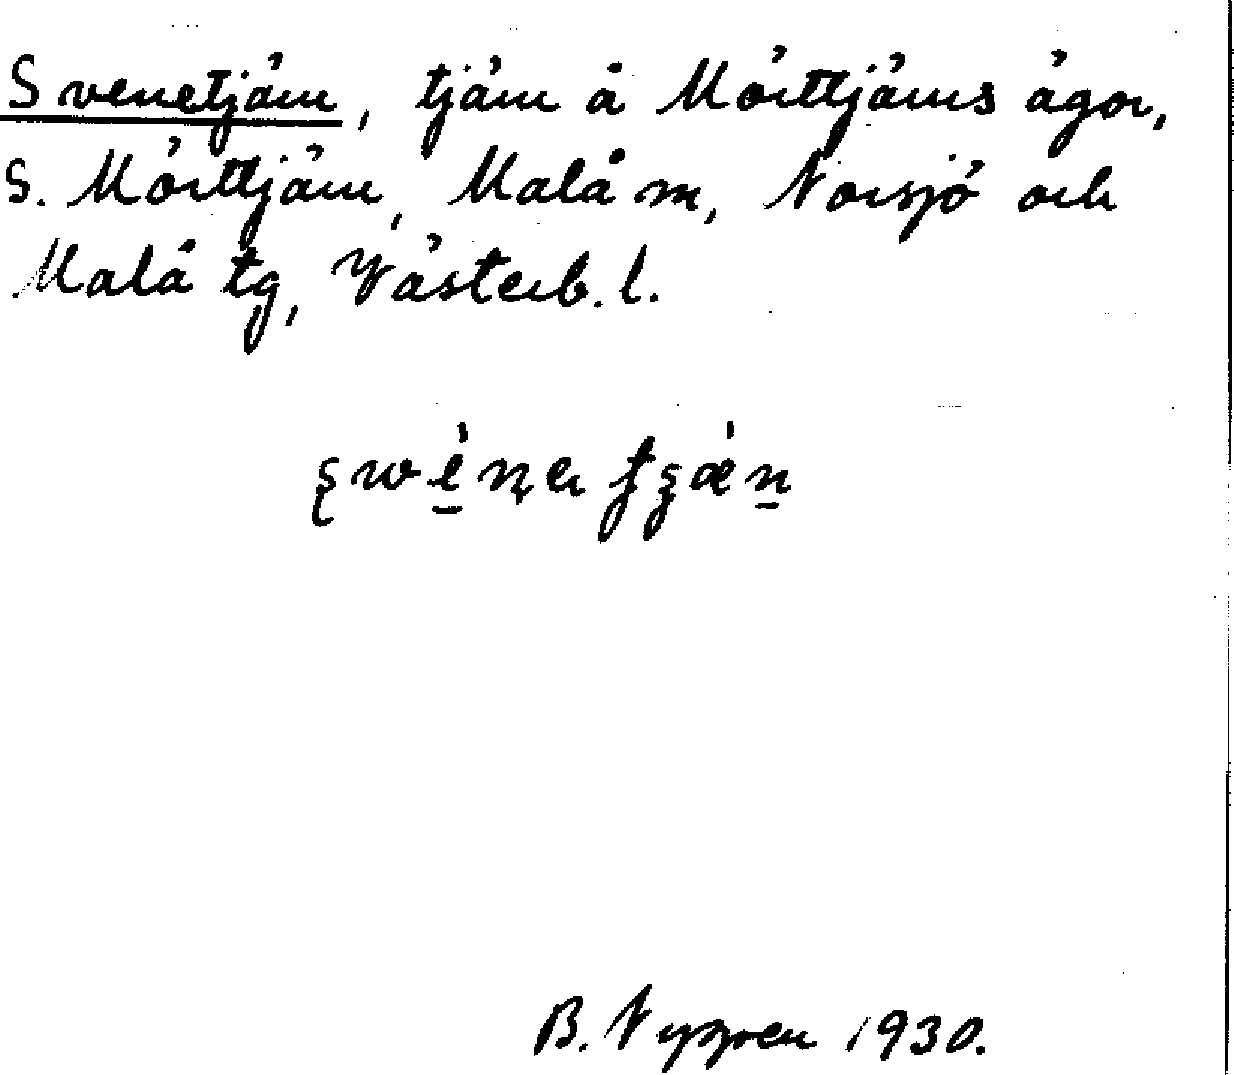 Svenetjärn, tjärn å Mörttjärns ägor,
S. Mörttjärn, Malå sn, Norsjö och
Malå tg, Västerb. l.
B. Nygren 1930.